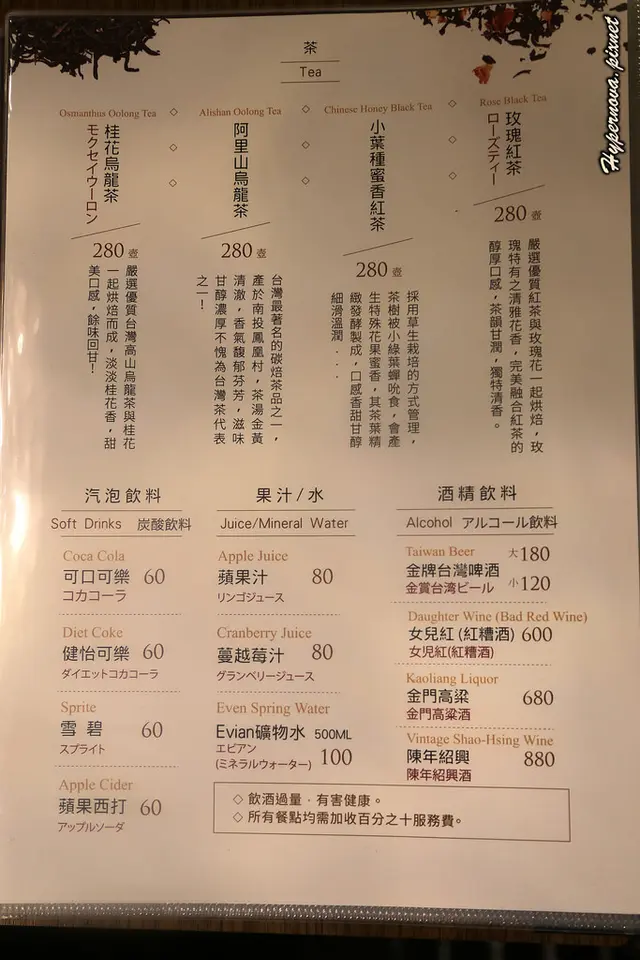 Hypernova.pixnet
茶
Tea
Osmanthus Oolong Tea
桂花烏龍茶
モクセイウーロン
280 壺
嚴選優質台灣高山烏龍茶與桂花
一起烘焙而成，淡淡桂花香，甜
美口感，餘味回甘！
Alishan Oolong Tea
阿里山烏龍茶
280 壺
台灣最著名的碳焙茶品之一，
產於南投鳳凰村，茶湯金黃
清澈，香氣馥郁芬芳，滋味
甘醇濃厚不愧為台灣茶代表
之一！
Chinese Honey Black Tea
小葉種蜜香紅茶
280 壺
採用草生栽培的方式管理，
茶樹被小綠葉蟬吮食，會產
生特殊花果蜜香，其茶葉精
緻發酵製成，口感香甜甘醇
細滑溫潤...
Rose Black Tea
玫瑰紅茶
ローズティー
280 壺
嚴選優質紅茶與玫瑰花一起烘焙，玫
瑰特有之清雅花香，完美融合紅茶的
醇厚口感，茶韻甘潤，獨特清香。
汽泡飲料
Soft Drinks 炭酸飲料
Coca Cola
可口可樂 60
コカコーラ
Diet Coke
健怡可樂 60
ダイエットコカコーラ
Sprite
雪 碧 60
スプライト
Apple Cider
蘋果西打 60
アップルソーダ
果汁/水
Juice/Mineral Water
Apple Juice
蘋果汁 80
リンゴジュース
Cranberry Juice
蔓越莓汁 80
グランベリージュース
Even Spring Water
Evian礦物水 500ML
エビアン
(ミネラルウォーター) 100
酒精飲料
Alcohol アルコール飲料
Taiwan Beer 大180
金牌台灣啤酒
金賞台湾ビール 小120
Daughter Wine (Bad Red Wine)
女兒紅(紅糟酒) 600
女児紅(紅糟酒)
Kaoliang Liquor
金門高粱 680
金門高粱酒
Vintage Shao-Hsing Wine
陳年紹興 880
陳年紹興酒
◇ 飲酒過量．有害健康。
◇ 所有餐點均需加收百分之十服務費。